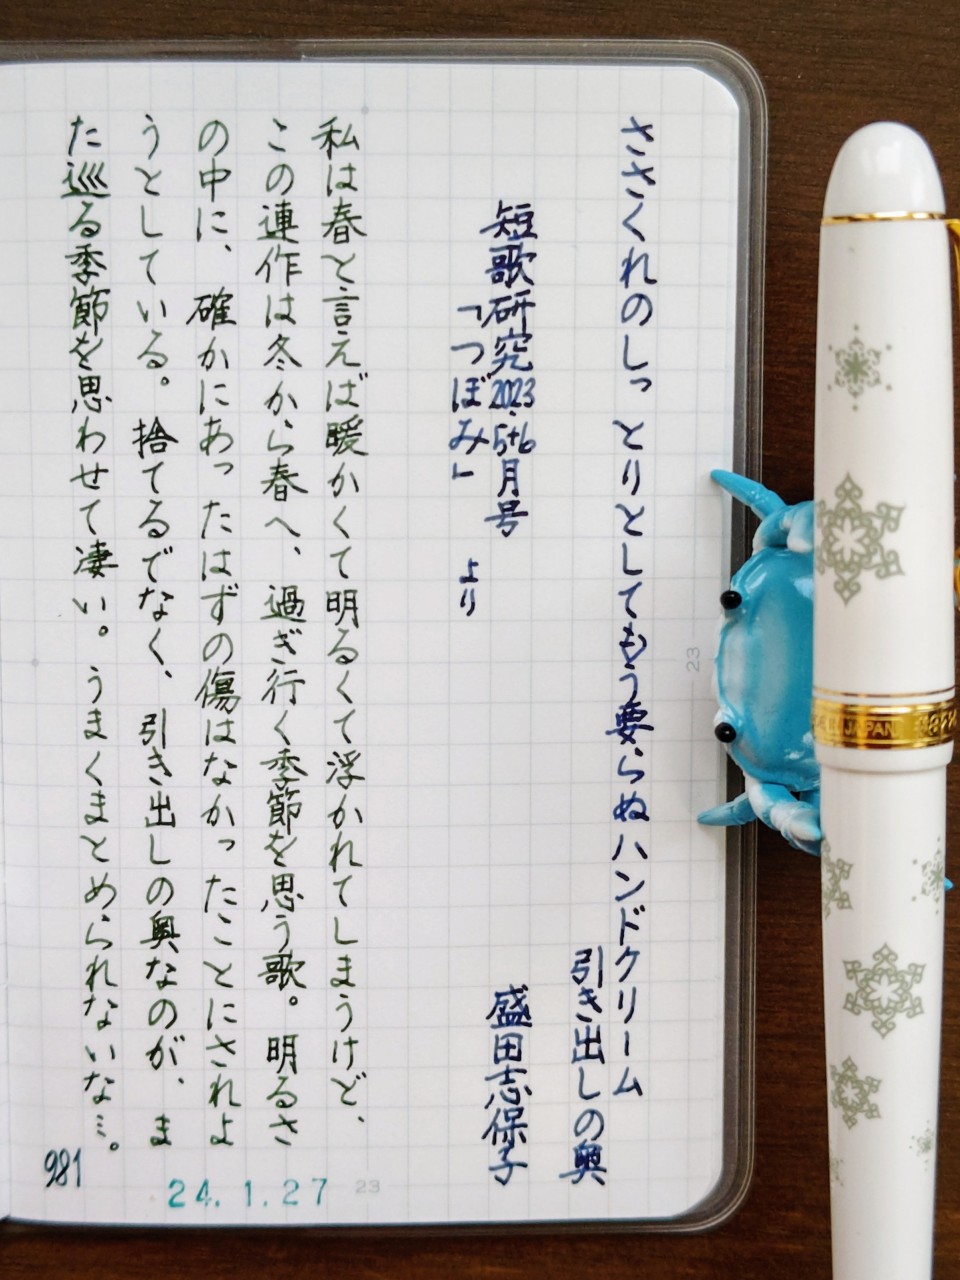 ささくれのしっとりとしてもう要らぬハンドクリーム
引き出しの奥
短歌研究2023.5+6月号
盛田志保子
「つぼみ」より
私は春と言えば暖かくて明るくて浮かれてしまうけど、
この連作は冬から春へ、過ぎ行く季節を思う歌。明るさ
の中に、確かにあったはずの傷はなかったことにされよ
うとしている。捨てるでなく、引き出しの奥なのが、ま
た巡る季節を思わせて凄い。うまくまとめられないな…。
981
24.1.27
23
23
JAPAN